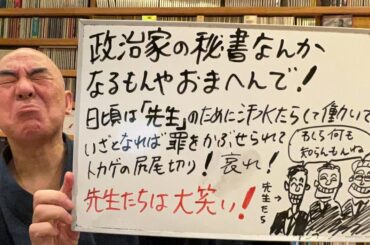 政治家の秘書なんか
なるもんやおまへんで！
日頃は「先生」のために汗水たらして働いて
いざとなれば罪をかぶせられて
トカゲの尻尾切り！ 哀れ！
先生たちは大笑い！
もしら何も
知らんもんね
先生たち